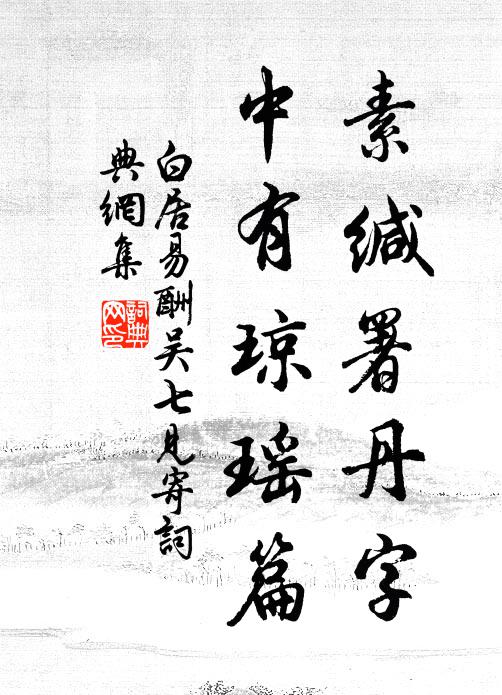 素缄署丹字
中有琼瑶篇
白居易酬吴七见寄詞
典網集
詞典
网印